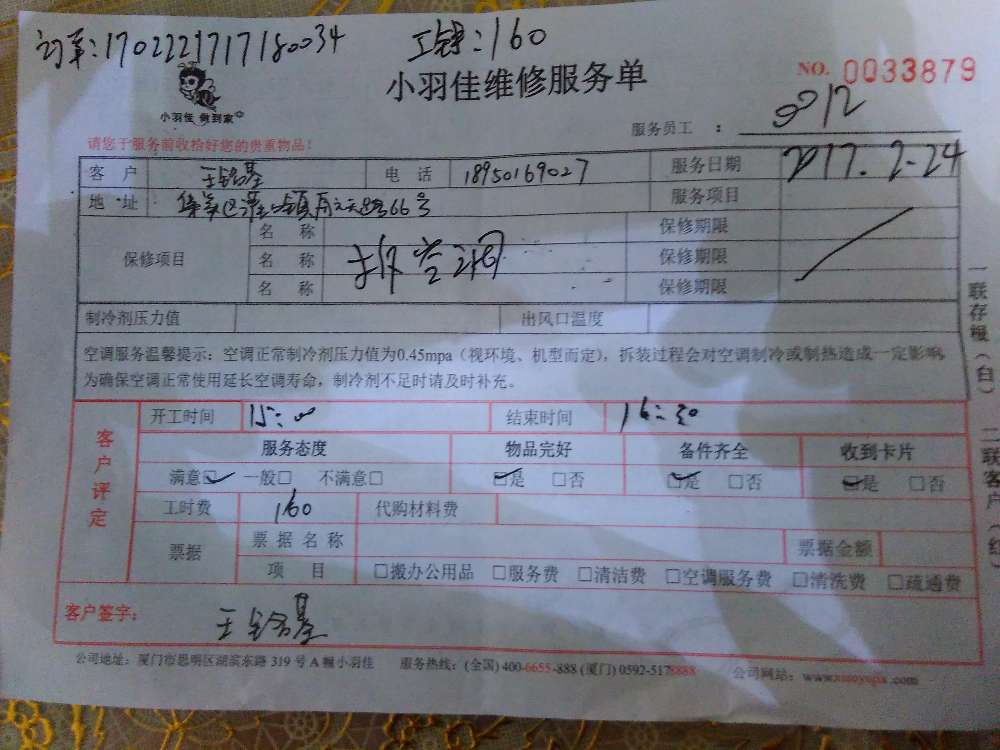 订单:170222171718
0034 工钱:160
小羽佳维修服务单 NO. 0033879
小羽佳 做到家
服务员工 : 9012
请您于服务前收拾好您的贵重物品!
客 户 电 话 18950169027 服务日期 2017.2-24
地 址: 66号 服务项目
保修项目 名 称 保修期限
名 称 拆空调 保修期限
名 称 保修期限
制冷剂压力值 出风口温度
空调服务温馨提示:空调正常制冷剂压力值为0.45mpa(视环境、机型而定),拆装过程会对空调制冷或制热造成一定影响,
为确保空调正常使用延长空调寿命,制冷剂不足时请及时补充。
客户评定
开工时间 15:00 结束时间 16:30
服务态度 物品完好 备件齐全 收到卡片
满意☑ 一般□ 不满意□ ☑是 □否 ☑是 □否 ☑是 □否
工时费 160 代购材料费
票据 票据名称 票据金额
项 目 □搬办公用品 □服务费 □清洁费 □空调服务费 □清洗费 □疏通费
客户签字:
公司地址:厦门市思明区湖滨东路 319 号 A 幢小羽佳 服务热线:(全国) 400-6655-888 (厦门) 0592-5178888 公司网站:www.xiaoyujia.com
一联存根(白) 二联客户(红)